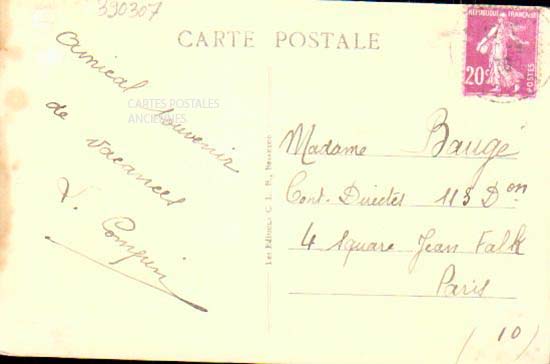 390307
CARTE POSTALE
RÉPUBLIQUE FRANÇAISE
20c
POSTES
CARTES POSTALES
ANCIENNES
Amical souvenir
de vacances
Les Editions C. L. B., Besançon
Madame Baugé
Cont. Directes 113 Don
4 Square Jean Falk
Paris
(10)